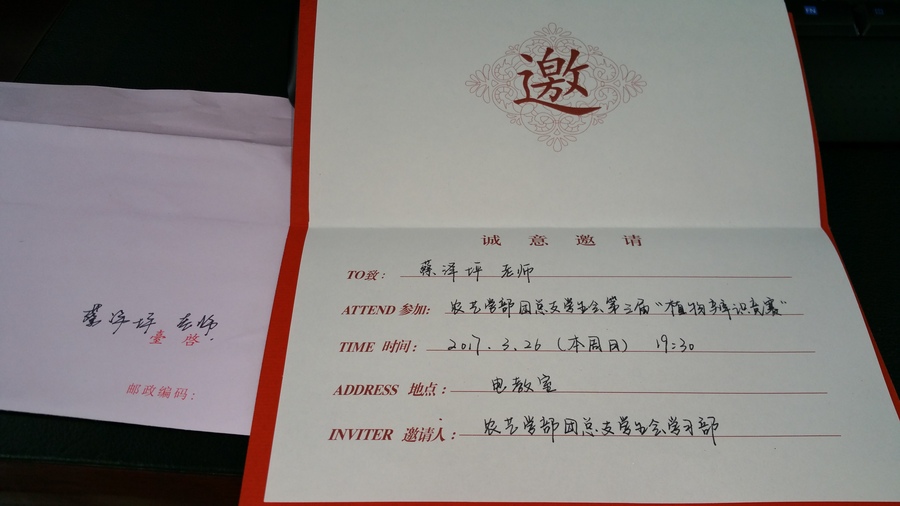 邀
诚意邀请
TO致: 蔡泽坪 老师
ATTEND 参加: 农艺学部团总支学生会第三届“植物辨识竞赛”
TIME 时间: 2017.3.26 (本周日) 19:30
ADDRESS 地点: 电教室
INVITER 邀请人: 农艺学部团总支学生会学习部
蔡泽坪 老师
臺启.
邮政编码: